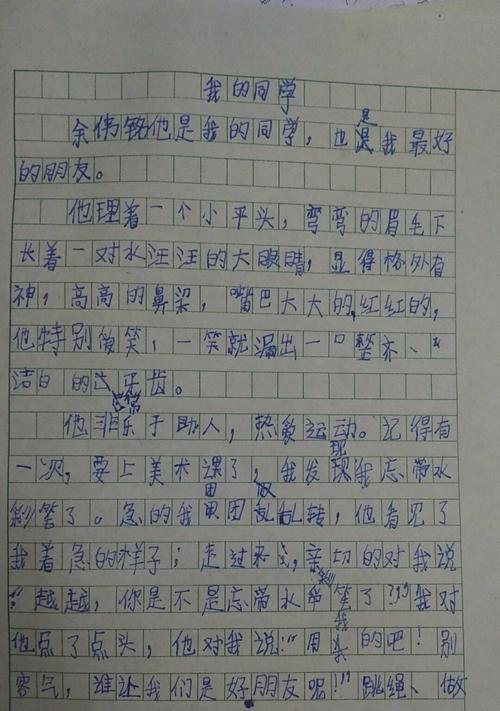 我的同学
余伟铭他是我的同学，也是我最好
的朋友。
他理着一个小平头，弯弯的眉毛下
长着一对水汪汪的大眼睛，显得格外有
神，高高的鼻梁，嘴巴大大的，红红的，
他特别爱笑，一笑就漏出一口整齐、
洁白的牙齿。
他非常乐于助人，热爱运动。记得有
一次，要上美术课了，我发现我忘带水
彩笔了。急的我团团乱转，他看见了
我着急的样子；走过来，亲切的对我说
：“越越，你是不是忘带水彩笔了？”我对
他点了点头，他对我说：“用我的吧！别
客气，谁让我们是好朋友呢！”跳绳、做